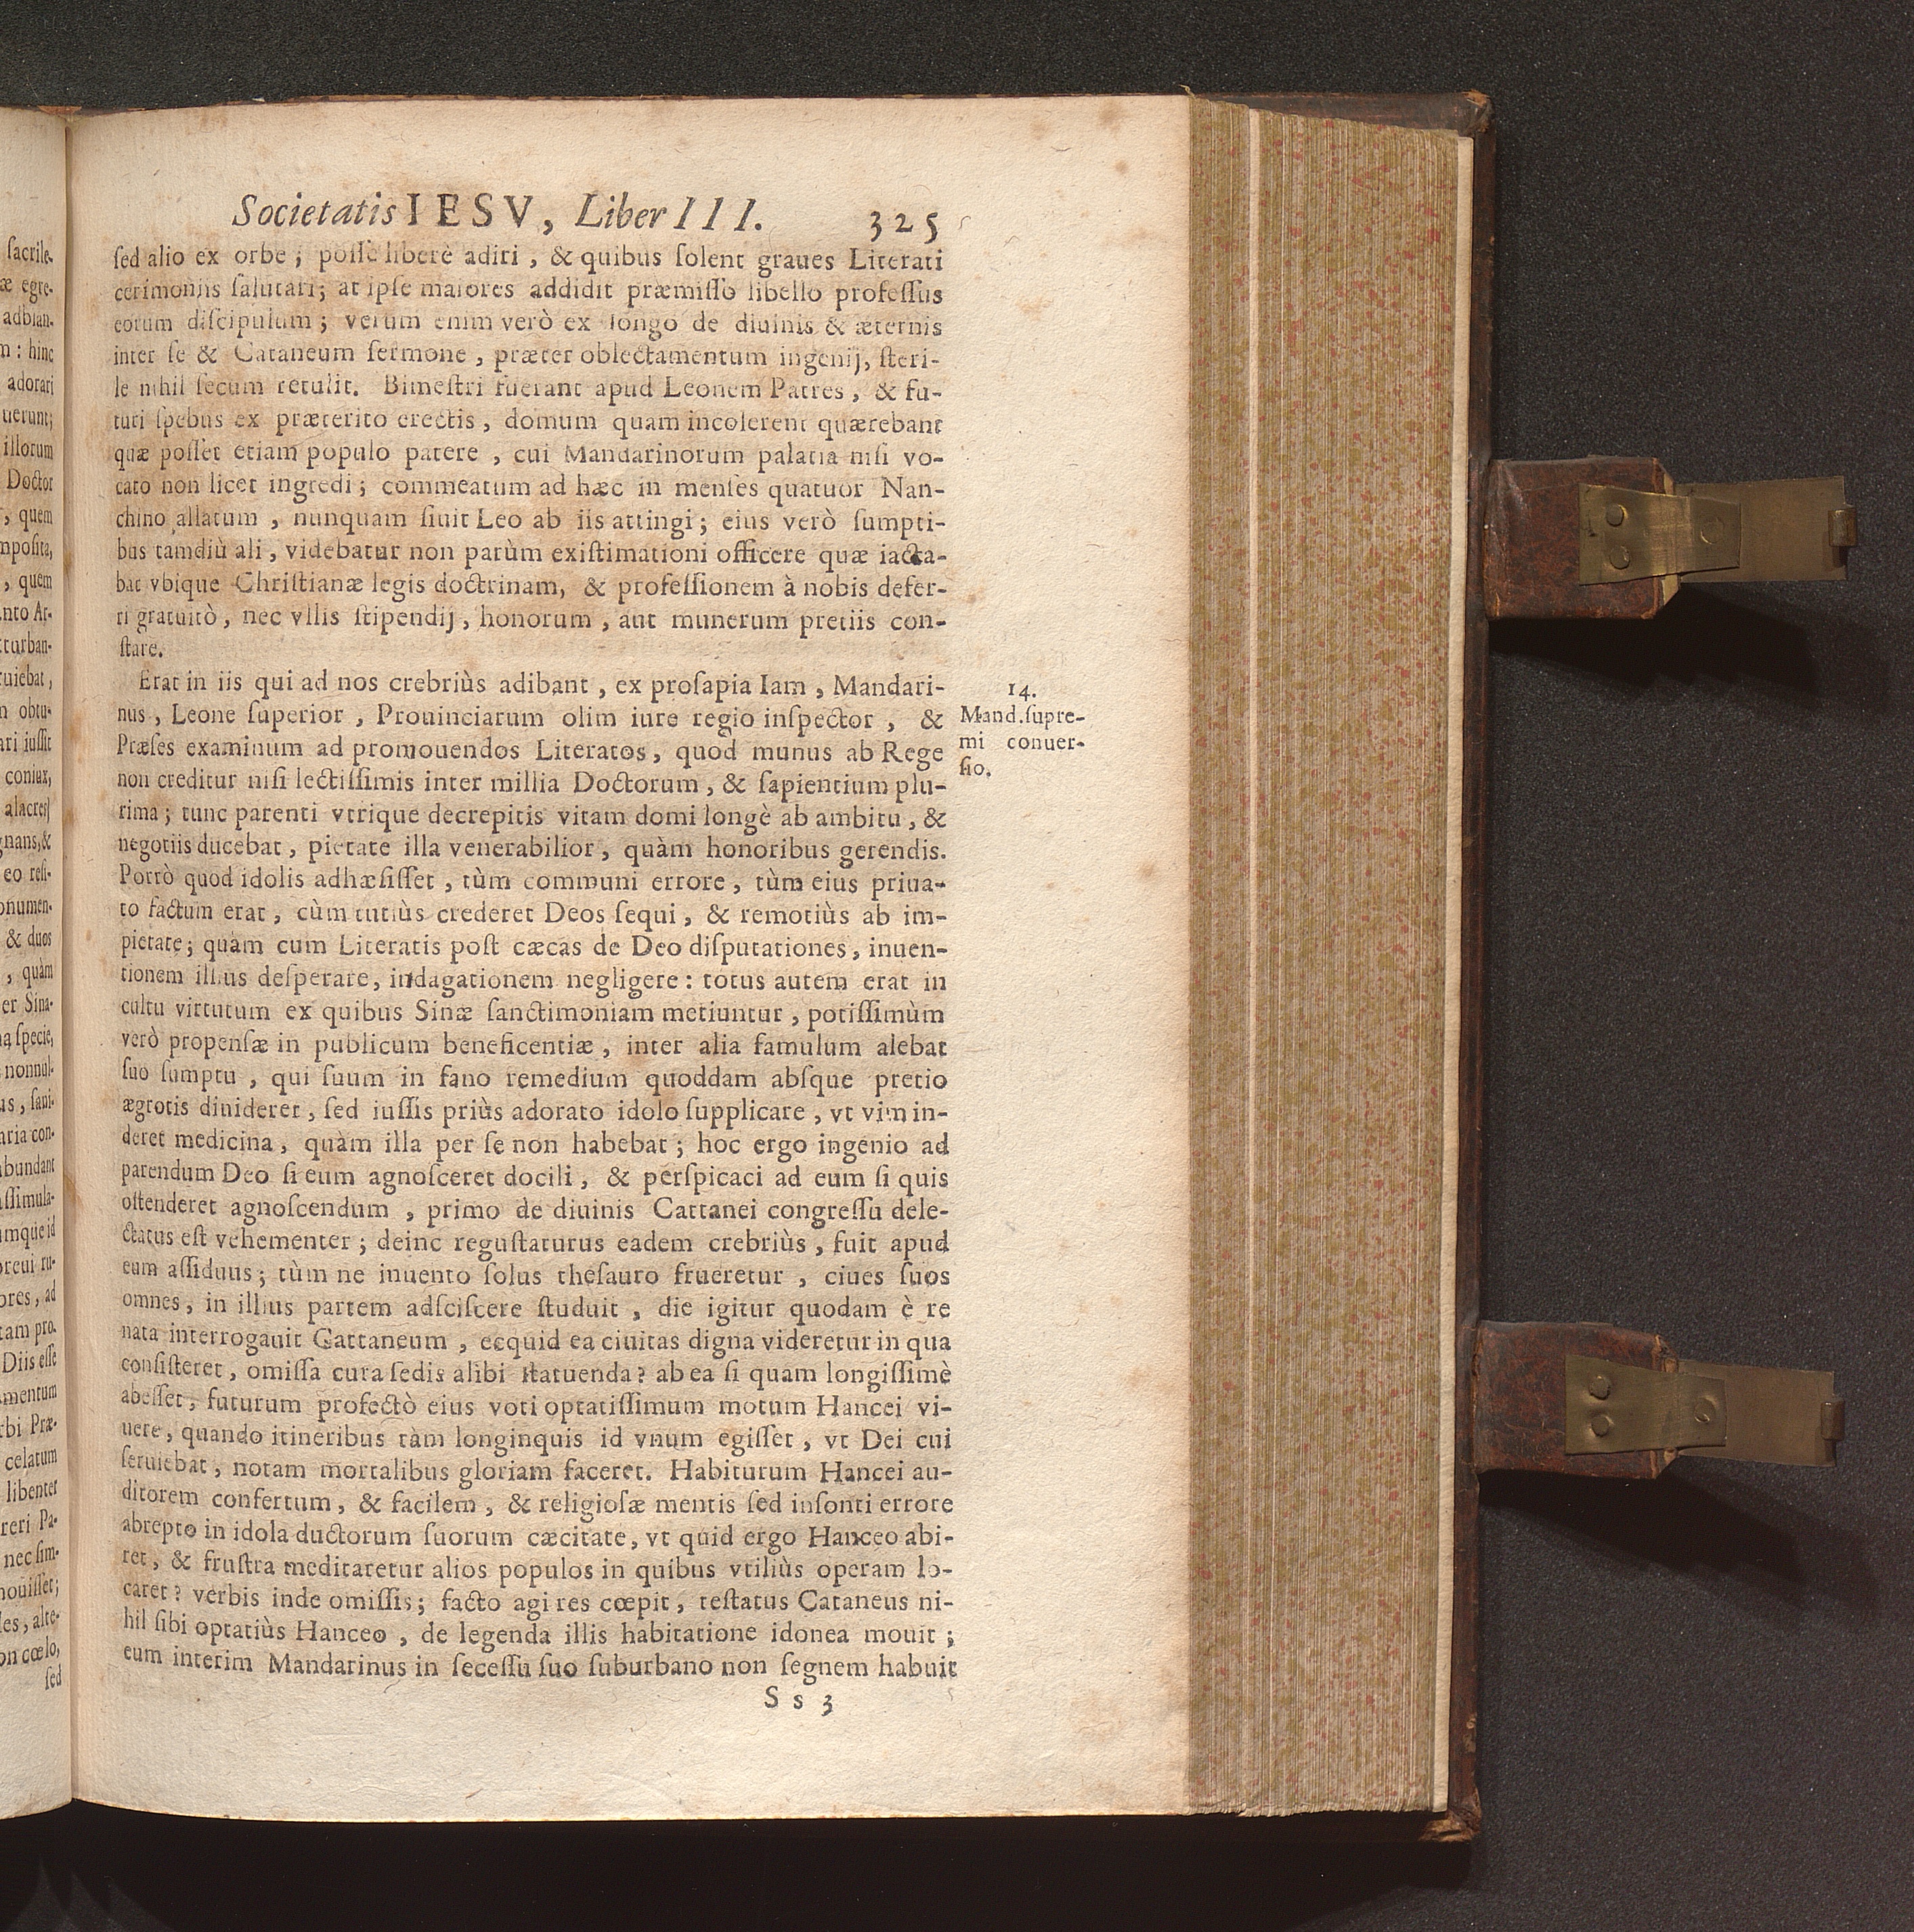 Societatis IESV, Liber III. 325
sed alio ex orbe; posse liberè adiri, & quibus solent graues Literati
cerimoniis salutari; at ipse maiores addidit præmisso libello professus
eorum discipulum; verum enim verò ex longo de diuinis & æternis
inter se & Cataneum sermone, præter oblectamentum ingenij, steri-
le nihil secum retulit. Bimestri fuerant apud Leonem Patres, & fu-
turi spebus ex præterito erectis, domum quam incolerent quærebant
quæ posset etiam populo patere, cui Mandarinorum palatia nisi vo-
cato non licet ingredi; commeatum ad hæc in menses quatuor Nan-
chino allatum, nunquam siuit Leo ab iis attingi; eius verò sumpti-
bus tamdiù ali, videbatur non parùm existimationi officere quæ iacta-
bat vbique Christianæ legis doctrinam, & professionem à nobis defer-
ri gratuitò, nec vllis stipendij, honorum, aut munerum pretiis con-
stare.
Erat in iis qui ad nos crebriùs adibant, ex prosapia Iam, Mandari-
nus, Leone superior, Prouinciarum olim iure regio inspector, &
Præses examinum ad promouendos Literatos, quod munus ab Rege
non creditur nisi lectissimis inter millia Doctorum, & sapientium plu-
rima; tunc parenti vtrique decrepitis vitam domi longè ab ambitu, &
negotiis ducebat, pietate illa venerabilior, quàm honoribus gerendis.
Porrò quod idolis adhæsisset, tùm communi errore, tùm eius priua-
to factum erat, cùm tutiùs crederet Deos sequi, & remotiùs ab im-
pietate; quàm cum Literatis post cæcas de Deo disputationes, inuen-
tionem illius desperare, indagationem negligere: totus autem erat in
cultu virtutum ex quibus Sinæ sanctimoniam metiuntur, potissimùm
verò propensæ in publicum beneficentiæ, inter alia famulum alebat
suo sumptu, qui suum in fano remedium quoddam absque pretio
ægrotis diuideret, sed iussis priùs adorato idolo supplicare, vt vim in-
deret medicina, quàm illa per se non habebat; hoc ergo ingenio ad
parendum Deo si eum agnosceret docili, & perspicaci ad eum si quis
ostenderet agnoscendum, primo de diuinis Cattanei congressu dele-
ctatus est vehementer; deinc regustaturus eadem crebriùs, fuit apud
eum assiduus; tùm ne inuento solus thesauro frueretur, ciues suos
omnes, in illius partem adsciscere studuit, die igitur quodam è re
nata interrogauit Gattaneum, ecquid ea ciuitas digna videretur in qua
consisteret, omissa cura sedis alibi statuenda? ab ea si quam longissimè
abesset, futurum profectò eius voti optatissimum motum Hancei vi-
uere, quando itineribus tàm longinquis id vnum egisset, vt Dei cui
seruiebat, notam mortalibus gloriam faceret. Habiturum Hancei au-
ditorem confertum, & facilem, & religiosæ mentis sed insonti errore
abrepto in idola ductorum suorum cæcitate, vt quid ergo Hanceo abi-
ret, & frustra meditaretur alios populos in quibus vtiliùs operam lo-
caret? verbis inde omissis; facto agi res cœpit, testatus Cataneus ni-
hil sibi optatiùs Hanceo, de legenda illis habitatione idonea mouit;
eum interim Mandarinus in secessu suo suburbano non segnem habuit
Ss 3
14.
Mand. supre-
mi conuer-
sio.
sacrile-
æ egre-
adblan-
m: hinc
adorari
uerunt;
illorum
Doctor
, quem
mposita,
, quem
nto Ar-
turban-
ruiebat,
m obtu-
ari iussit
coniux,
alacres
gnans, &
eo resi-
onumen-
& duos
, quàm
er Sina-
specie,
nonnul-
us, sani-
aria con-
abundant
assimula-
umque id
ores, ad
tam pro-
Diis esse
mentum
rbi Præ-
celatum
libenter
reri Pa-
nec sim-
nouisset;
les, alte-
on cœlo,
sed